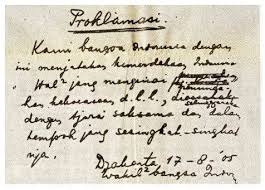 Proklamasi
Kami bangsa Indonesia dengan
ini menjatakan kemerdekaan Indonesia
Hal² jang mengenai
kekoeasaan d.l.l., diselenggarakan
dengan tjara saksama dan dalam
tempoh jang sesingkat-singkat
nja.
Djakarta, 17-8-'05
Wakil² bangsa Indon